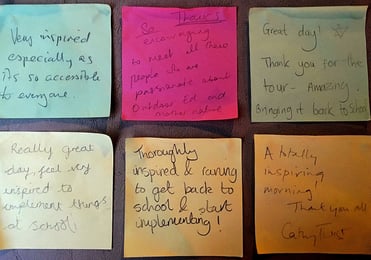 Very inspired
especially as
its so accessible
to everyone
So Thanks
encouraging
to meet all these
people who are
passionate about
Outdoor Ed and
mother nature
Great day!
Thank you for the
tour - Amazing.
Bringing it back to School
Really great
day, feel very
inspired to
implement things
at school
Thoroughly
inspired & raring
to get back to
school & start
implementing!
A totally
inspiring
morning!
Thank you all
Cathy